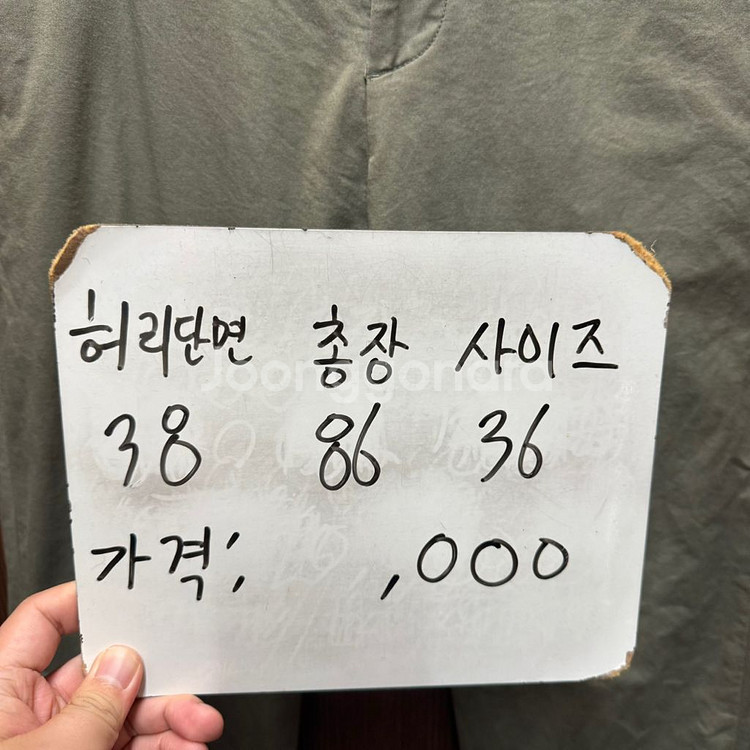 허리단면 총장 사이즈
Joonggonara
38 86 36
가격; ,000